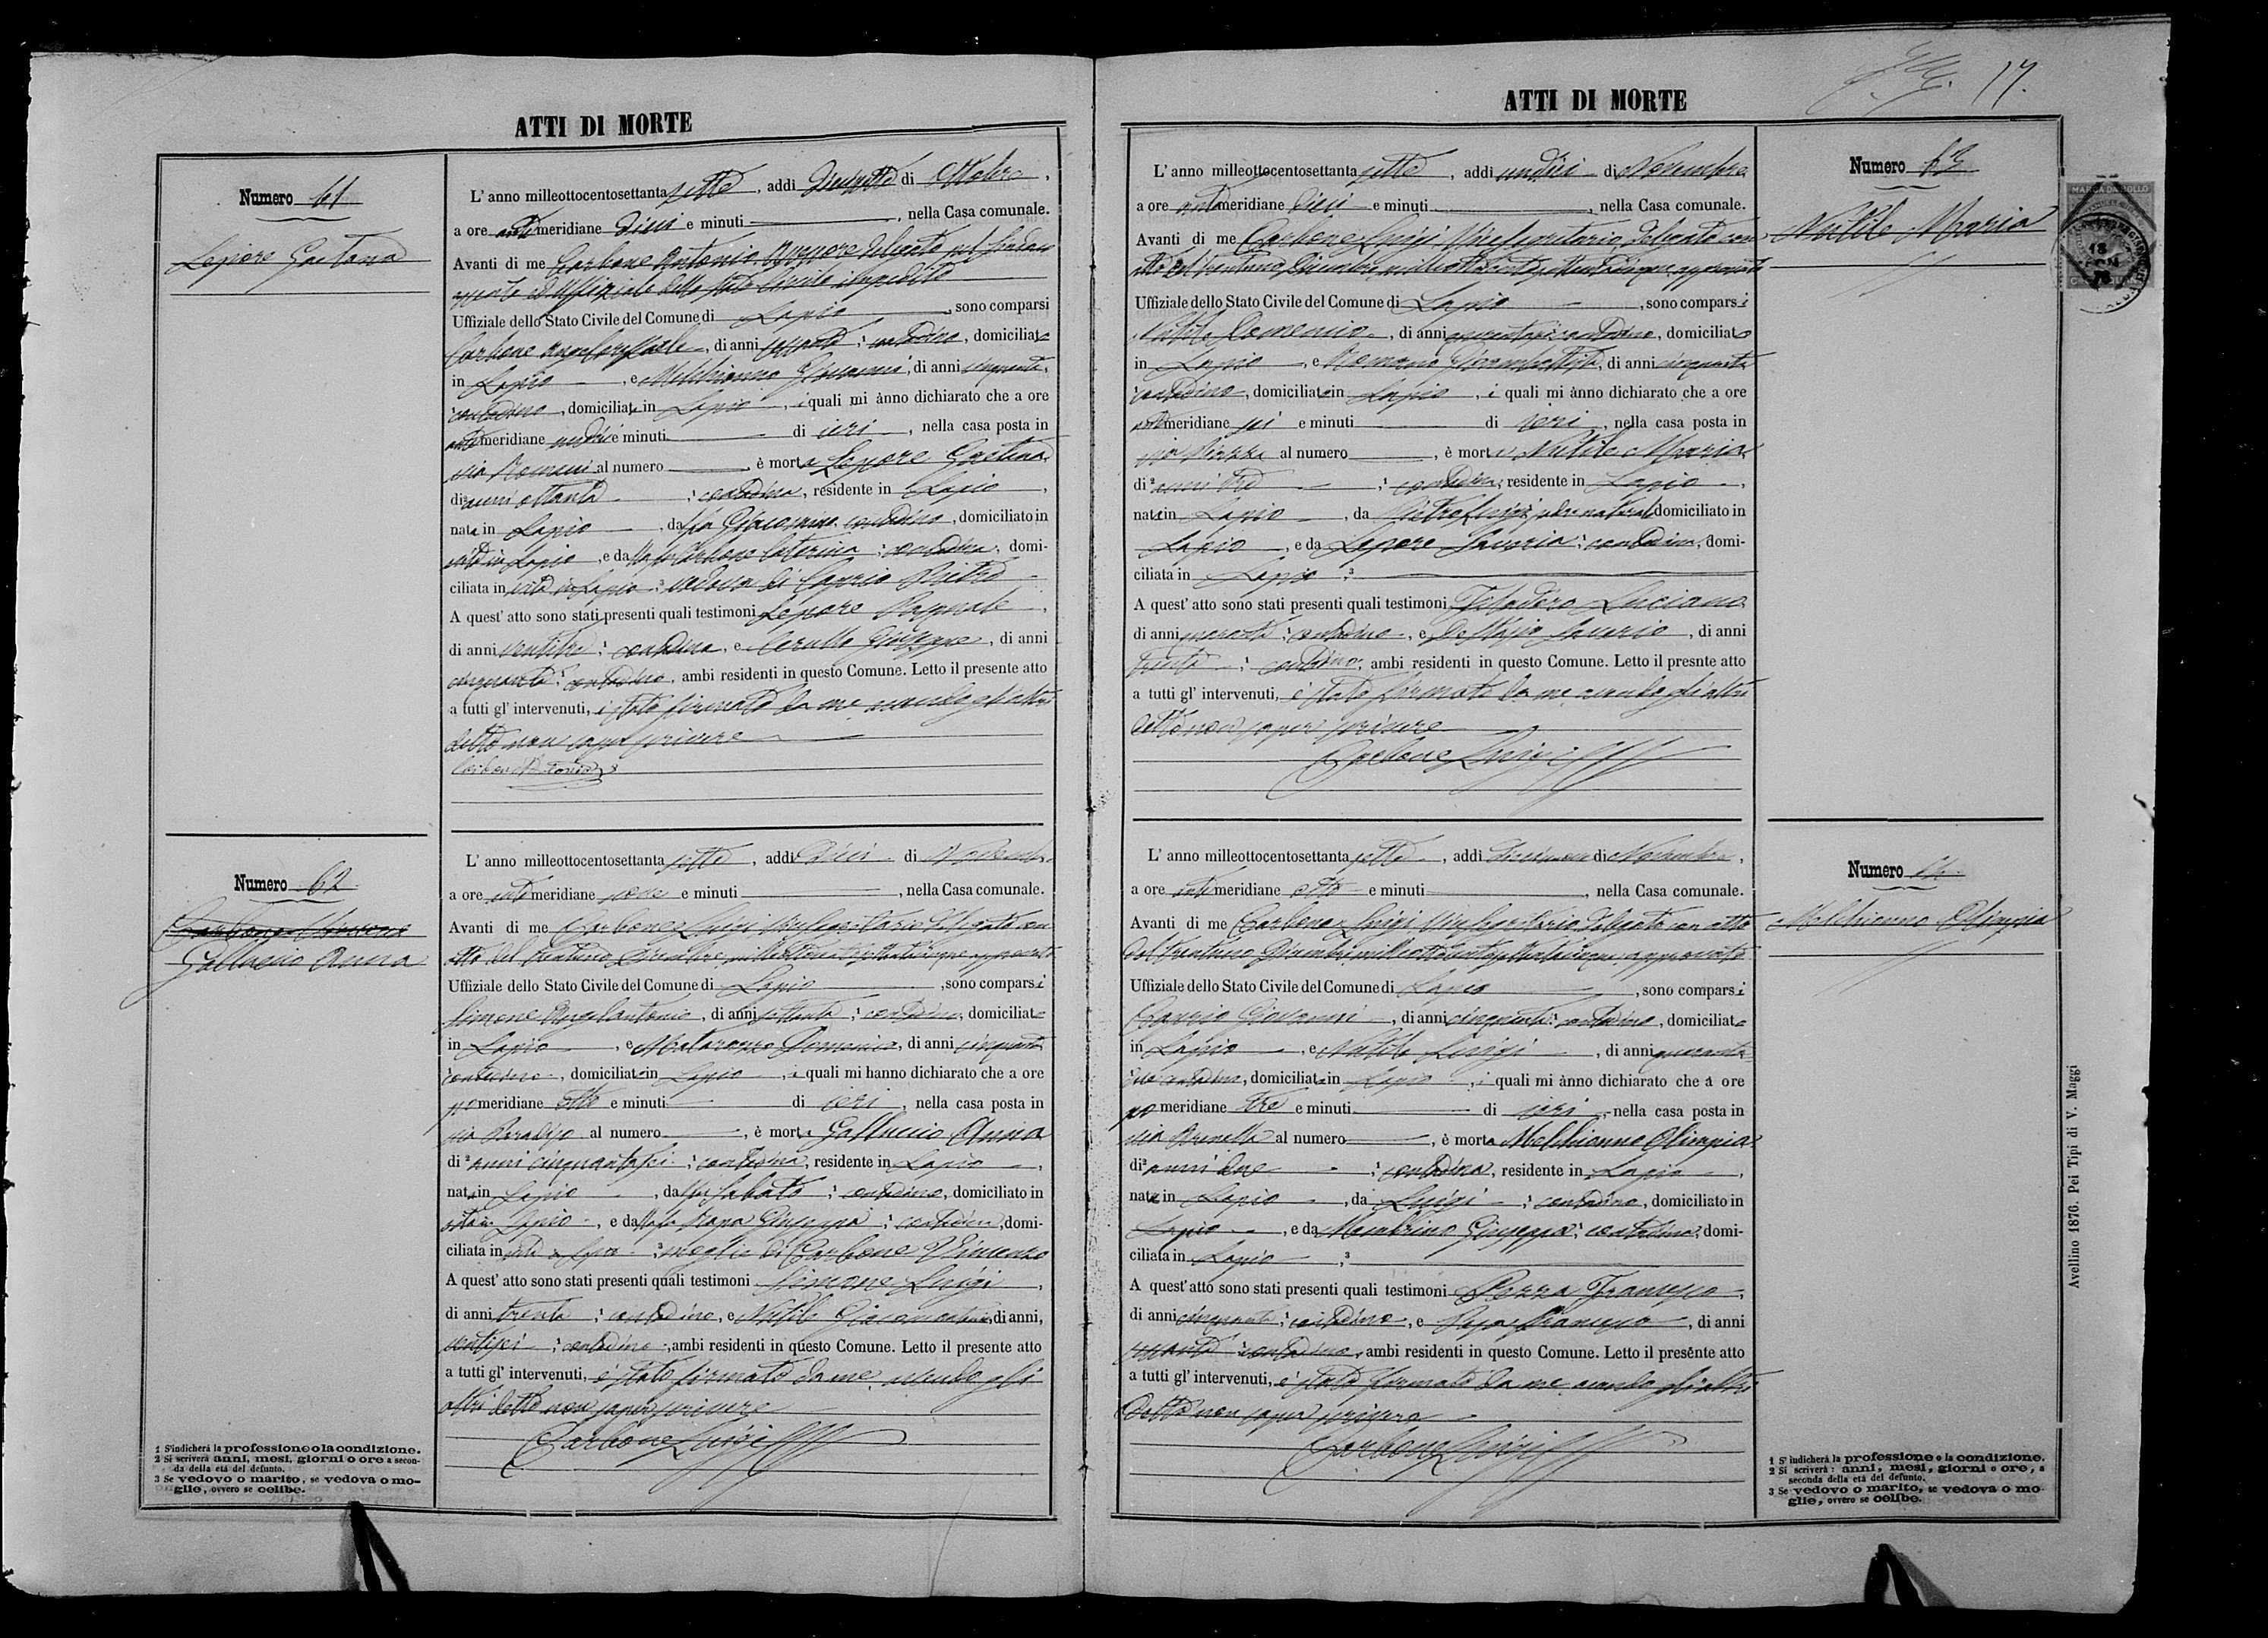 ATTI DI MORTE
Numero 61
Lepore Gaetana
L' anno milleottocentosettanta sette, addì Diciotto di Ottobre,
a ore anti meridiane Dieci e minuti, nella Casa comunale.
Avanti di me Carbone Antonio Assessore delegato pel Sindaco
assente ed Uffiziale dello Stato Civile impedito
Uffiziale dello Stato Civile del Comune di Lapio, sono comparsi
Carbone, di anni, contadino, domiciliato
in Lapio, e Melchionno Giovanni, di anni cinquanta,
contadino, domiciliato in Lapio, i quali mi ànno dichiarato che a ore
anti meridiane undici e minuti di ieri, nella casa posta in
via Romani al numero, è morta Lepore Gaetana
di 2 anni ottanta, contadina, residente in Lapio,
nata in Lapio, da fu Giacomino contadino, domiciliato in
vita in Lapio, e da fu Carbone Caterina, contadina, domi-
ciliata in vita in Lapio, 3 vedova di Caprio Pietro
A quest' atto sono stati presenti quali testimoni Lepore Pasquale,
di anni ventitre, contadino, e Cerullo Giuseppe, di anni
cinquanta, contadino, ambi residenti in questo Comune. Letto il presente atto
a tutti gl' intervenuti, è stato firmato da me avendo gli altri
detto non saper scrivere
Carbone Antonio
Numero 62
Carbone
Galluccio Anna
L' anno milleottocentosettanta sette, addì Dieci di Novembre
a ore anti meridiane nove e minuti, nella Casa comunale.
Avanti di me Carbone Luigi Vicesegretario Delegato con
atto del trentuno Dicembre milleottocentosettantacinque approvato
Uffiziale dello Stato Civile del Comune di Lapio, sono comparsi
Simone Angelantonio, di anni settanta, contadino, domiciliato
in Lapio, e Matarazzo Domenico, di anni cinquanta
contadino, domiciliato in Lapio, i quali mi hanno dichiarato che a ore
po meridiane otto e minuti di ieri, nella casa posta in
via Paradiso al numero, è morta Galluccio Anna
di 2 anni cinquantasei, contadina, residente in Lapio,
nata in Lapio, da fu Sabato, contadino, domiciliato in
vita in Lapio, e da fu Giuseppa, contadina, domi-
ciliata in vita in Lapio, 3 moglie di Carbone Vincenzo
A quest' atto sono stati presenti quali testimoni Simone Luigi,
di anni trenta, contadino, e Nutile Giacomantonio, di anni,
ventisei, contadino, ambi residenti in questo Comune. Letto il presente atto
a tutti gl' intervenuti, è stato firmato da me avendo gli
altri detto non saper scrivere
Carbone Luigi
1 S'indicherà la professione o la condizione.
2 Si scriverà anni, mesi, giorni o ore a secon-
da della età del defunto.
3 Se vedovo o marito, se vedova o mo-
glie, ovvero se celibe.
ATTI DI MORTE
17.
Numero 63
Nutile Maria
MARCA DA BOLLO
L' anno milleottocentosettanta sette, addì undici di Novembre
a ore anti meridiane Dieci e minuti, nella Casa comunale.
Avanti di me Carbone Luigi Vicesegretario Delegato con
atto del trentuno Dicembre milleottocentosettantacinque approvato
Uffiziale dello Stato Civile del Comune di Lapio, sono comparsi
Nutile Domenico, di anni, contadino, domiciliato
in Lapio, e Romano Giambattista, di anni cinquanta
contadino, domiciliato in Lapio, i quali mi ànno dichiarato che a ore
anti meridiane sei e minuti di ieri, nella casa posta in
via Piazza al numero, è morta Nutile Maria
di 2 anni tre, contadina, residente in Lapio,
nata in Lapio, da Pietroluigi, domiciliato in
Lapio, e da Lepore Saveria, contadina, domi-
ciliata in Lapio, 3
A quest' atto sono stati presenti quali testimoni Luciano
di anni, contadino, e Saverio, di anni
trenta, contadino, ambi residenti in questo Comune. Letto il presnte atto
a tutti gl' intervenuti, è stato firmato da me avendo gli altri
detto non saper scrivere
Carbone Luigi
Numero 64
Melchionno Olimpia
L' anno milleottocentosettanta sette, addì di Novembre,
a ore anti meridiane otto e minuti, nella Casa comunale.
Avanti di me Carbone Luigi Vicesegretario Delegato con atto
del trentuno Dicembre milleottocentosettantacinque approvato
Uffiziale dello Stato Civile del Comune di Lapio, sono comparsi
Caprio Giovanni, di anni cinquanta, contadino, domiciliato
in Lapio, e Nutile Luigi, di anni quaranta
contadino, domiciliato in Lapio, i quali mi ànno dichiarato che a ore
po meridiane tre e minuti di ieri, nella casa posta in
via al numero, è morta Melchionno Olimpia
di 2 anni due, contadina, residente in Lapio,
nata in Lapio, da Luigi, contadino, domiciliato in
Lapio, e da Giuseppa, contadina, domi-
ciliata in Lapio, 3
A quest' atto sono stati presenti quali testimoni Francesco,
di anni cinquanta, contadino, e Francesco, di anni
sessanta, contadino, ambi residenti in questo Comune. Letto il presente atto
a tutti gl' intervenuti, è stato firmato da me avendo gli altri
detto non saper scrivere
Carbone Luigi
1 S' indicherà la professione o la condizione.
2 Si scriverà: anni, mesi, giorni o ore, a
seconda della età del defunto.
3 Se vedovo o marito, se vedova o mo-
glie, ovvero se celibe.
Avellino 1876. Pei Tipi di V. Maggi